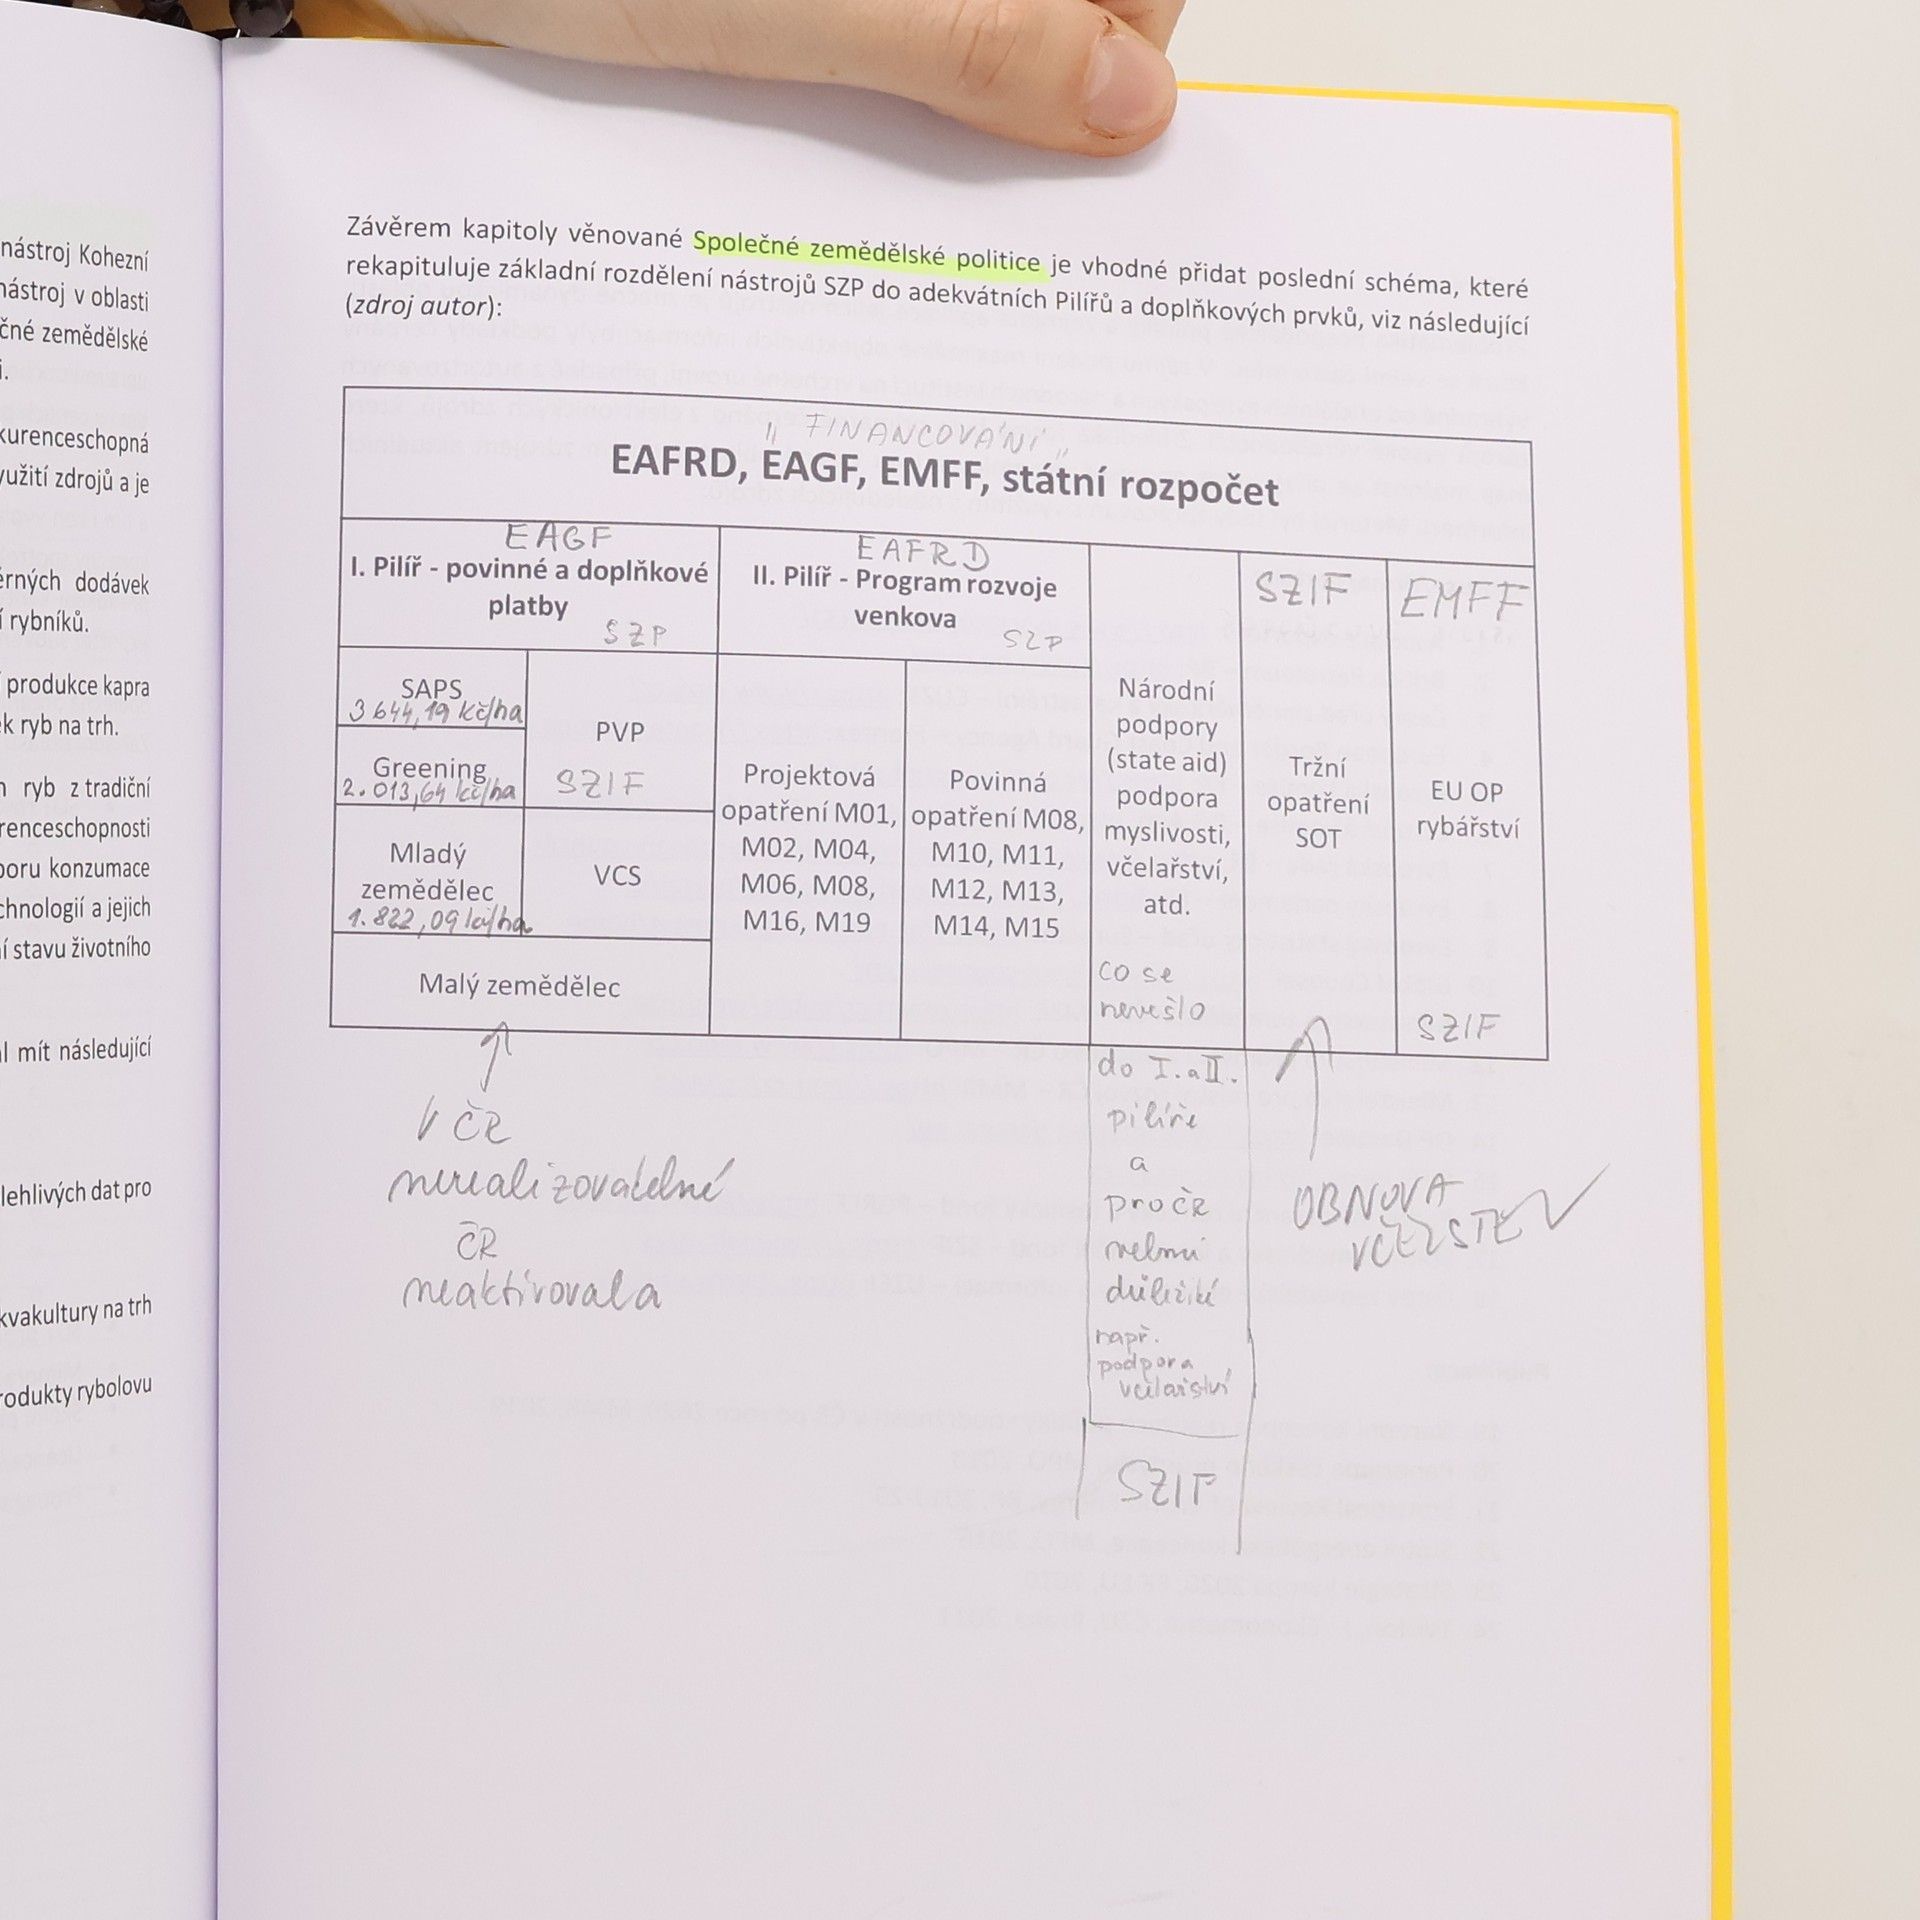 nástroj Kohezní
nástroj v oblasti
čné zemědělské
i.
kurenceschopná
využití zdrojů a je
ěrných dodávek
í rybníků.
produkce kapra
k ryb na trh.
ryb z tradiční
renceschopnosti
poru konzumace
chnologií a jejich
í stavu životního
l mít následující
lehlivých dat pro
kvakultury na trh
rodukty rybolovu
Závěrem kapitoly věnované Společné zemědělské politice je vhodné přidat poslední schéma, které
rekapituluje základní rozdělení nástrojů SZP do adekvátních Pilířů a doplňkových prvků, viz následující
(zdroj autor):
„FINANCOVÁNÍ"
EAFRD, EAGF, EMFF, státní rozpočet
EAGF
I. Pilíř - povinné a doplňkové
platby
SZP
EAFRD
II. Pilíř - Program rozvoje
venkova
SZP
SAPS
3 644,19 kč/ha
Greening
2.013,64 kč/ha
Mladý
zemědělec
1.822,09 kč/ha
PVP
SZIF
VCS
Malý zemědělec
Projektová
opatření M01,
M02, M04,
M06, M08,
M16, M19
Povinná
opatření M08,
M10, M11,
M12, M13,
M14, M15
Národní
podpory
(state aid)
podpora
myslivosti,
včelařství,
atd.
co se
nevešlo
do I. a II.
pilíře
a
pro ČR
velmi
důležité
např.
podpora
včelařství
SZIF
SZIF
Tržní
opatření
SOT
EMFF
EU OP
rybářství
SZIF
V ČR
nerealizovatelné
ČR
neaktivovala
OBNOVA
VČELSTEV